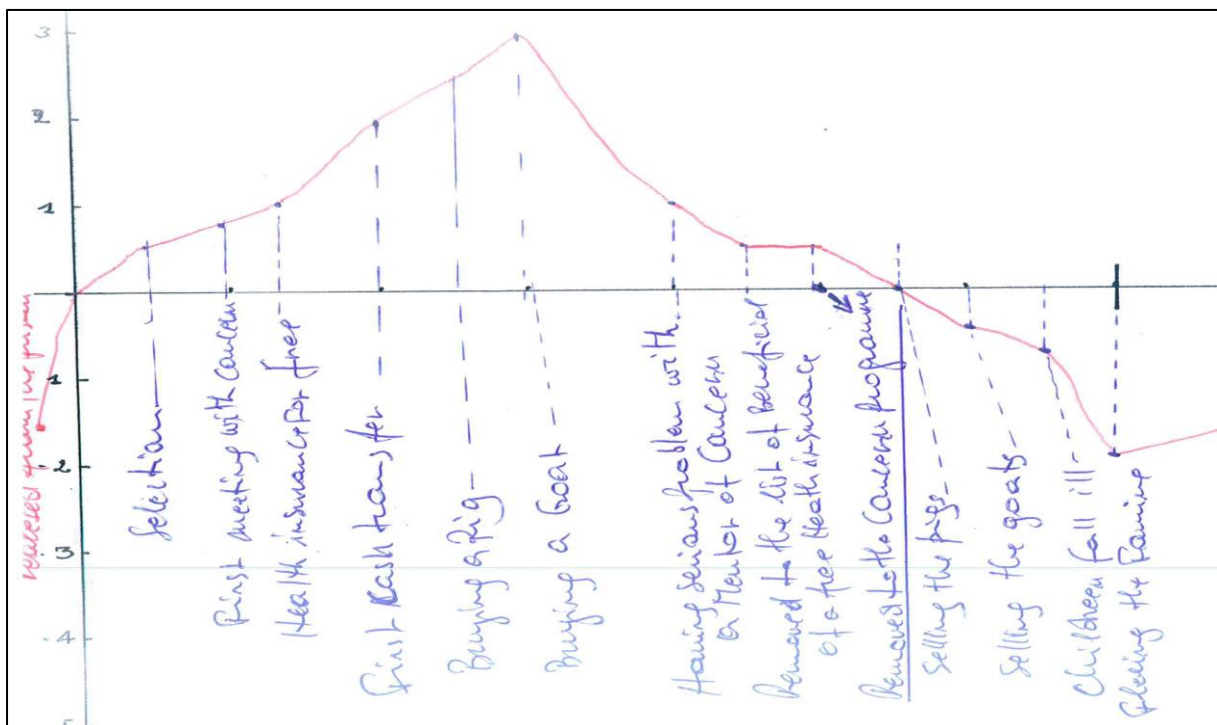 3
2
1
1
-2
-3
-4
Selection
First meeting with concern
Health insurance for free
First Cash transfer
Buying a Pig
Buying a Goat
Having serious problem with
a Mentor of Concern
Removed to the list of beneficial
of a free Heath insurance
Removed to the Concern programme
Selling the pigs
Selling the goats
Childreen fall ill
the Famine